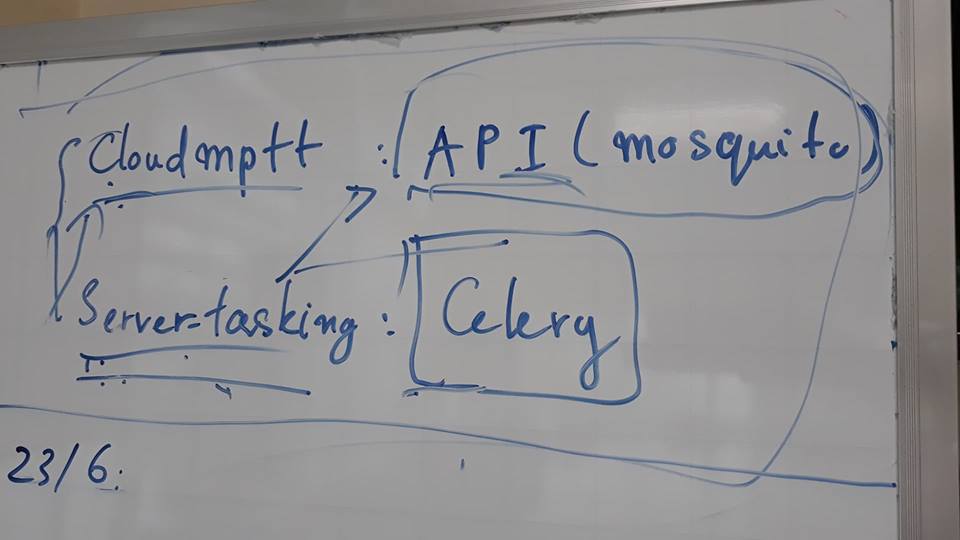 Cloudmptt : API (mosquito)
Server-tasking : Celery
23/6: